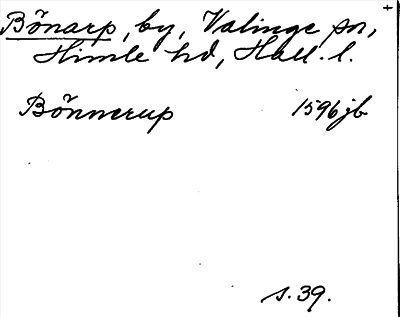 Bönarp, by, Valinge sn,
Himle hd, Hall. l.
Bönnerup 1596 jb
s. 39.